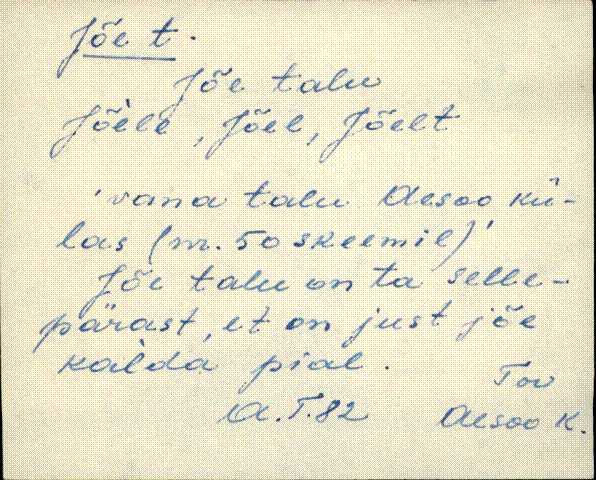 Jõe t.
Jõe talu
Jõ̀ele, Jõel, Jõelt
'vana talu Aesoo kü-
las (nr. 50 skeemil)'
Jõe talu on ta selle-
pärast, et on just jõe
kal̀da pial.
Tor
A.T.82 Aesoo k.